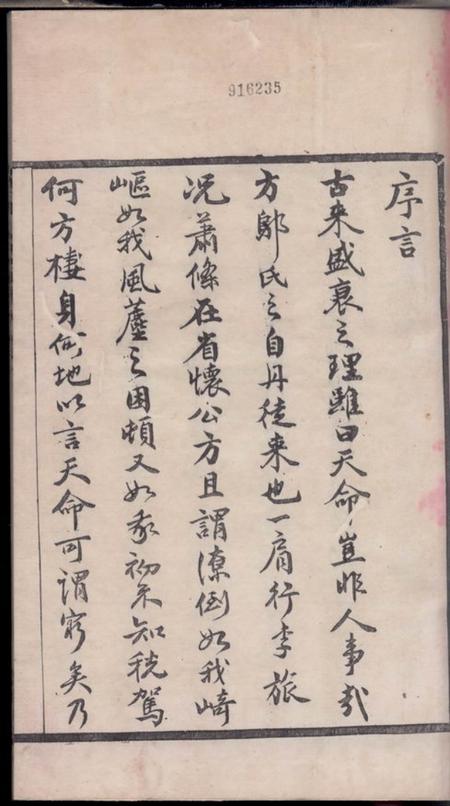 916235
序言
古来盛衰之理雖曰天命豈非人事哉
方鄔氏之自丹徒来也一肩行李旅
况蕭條在省懷公方且謂潦倒如我崎
嶇如我風塵之困頓又如我初不知税駕
何方棲身何地以言天命可謂窮矣乃